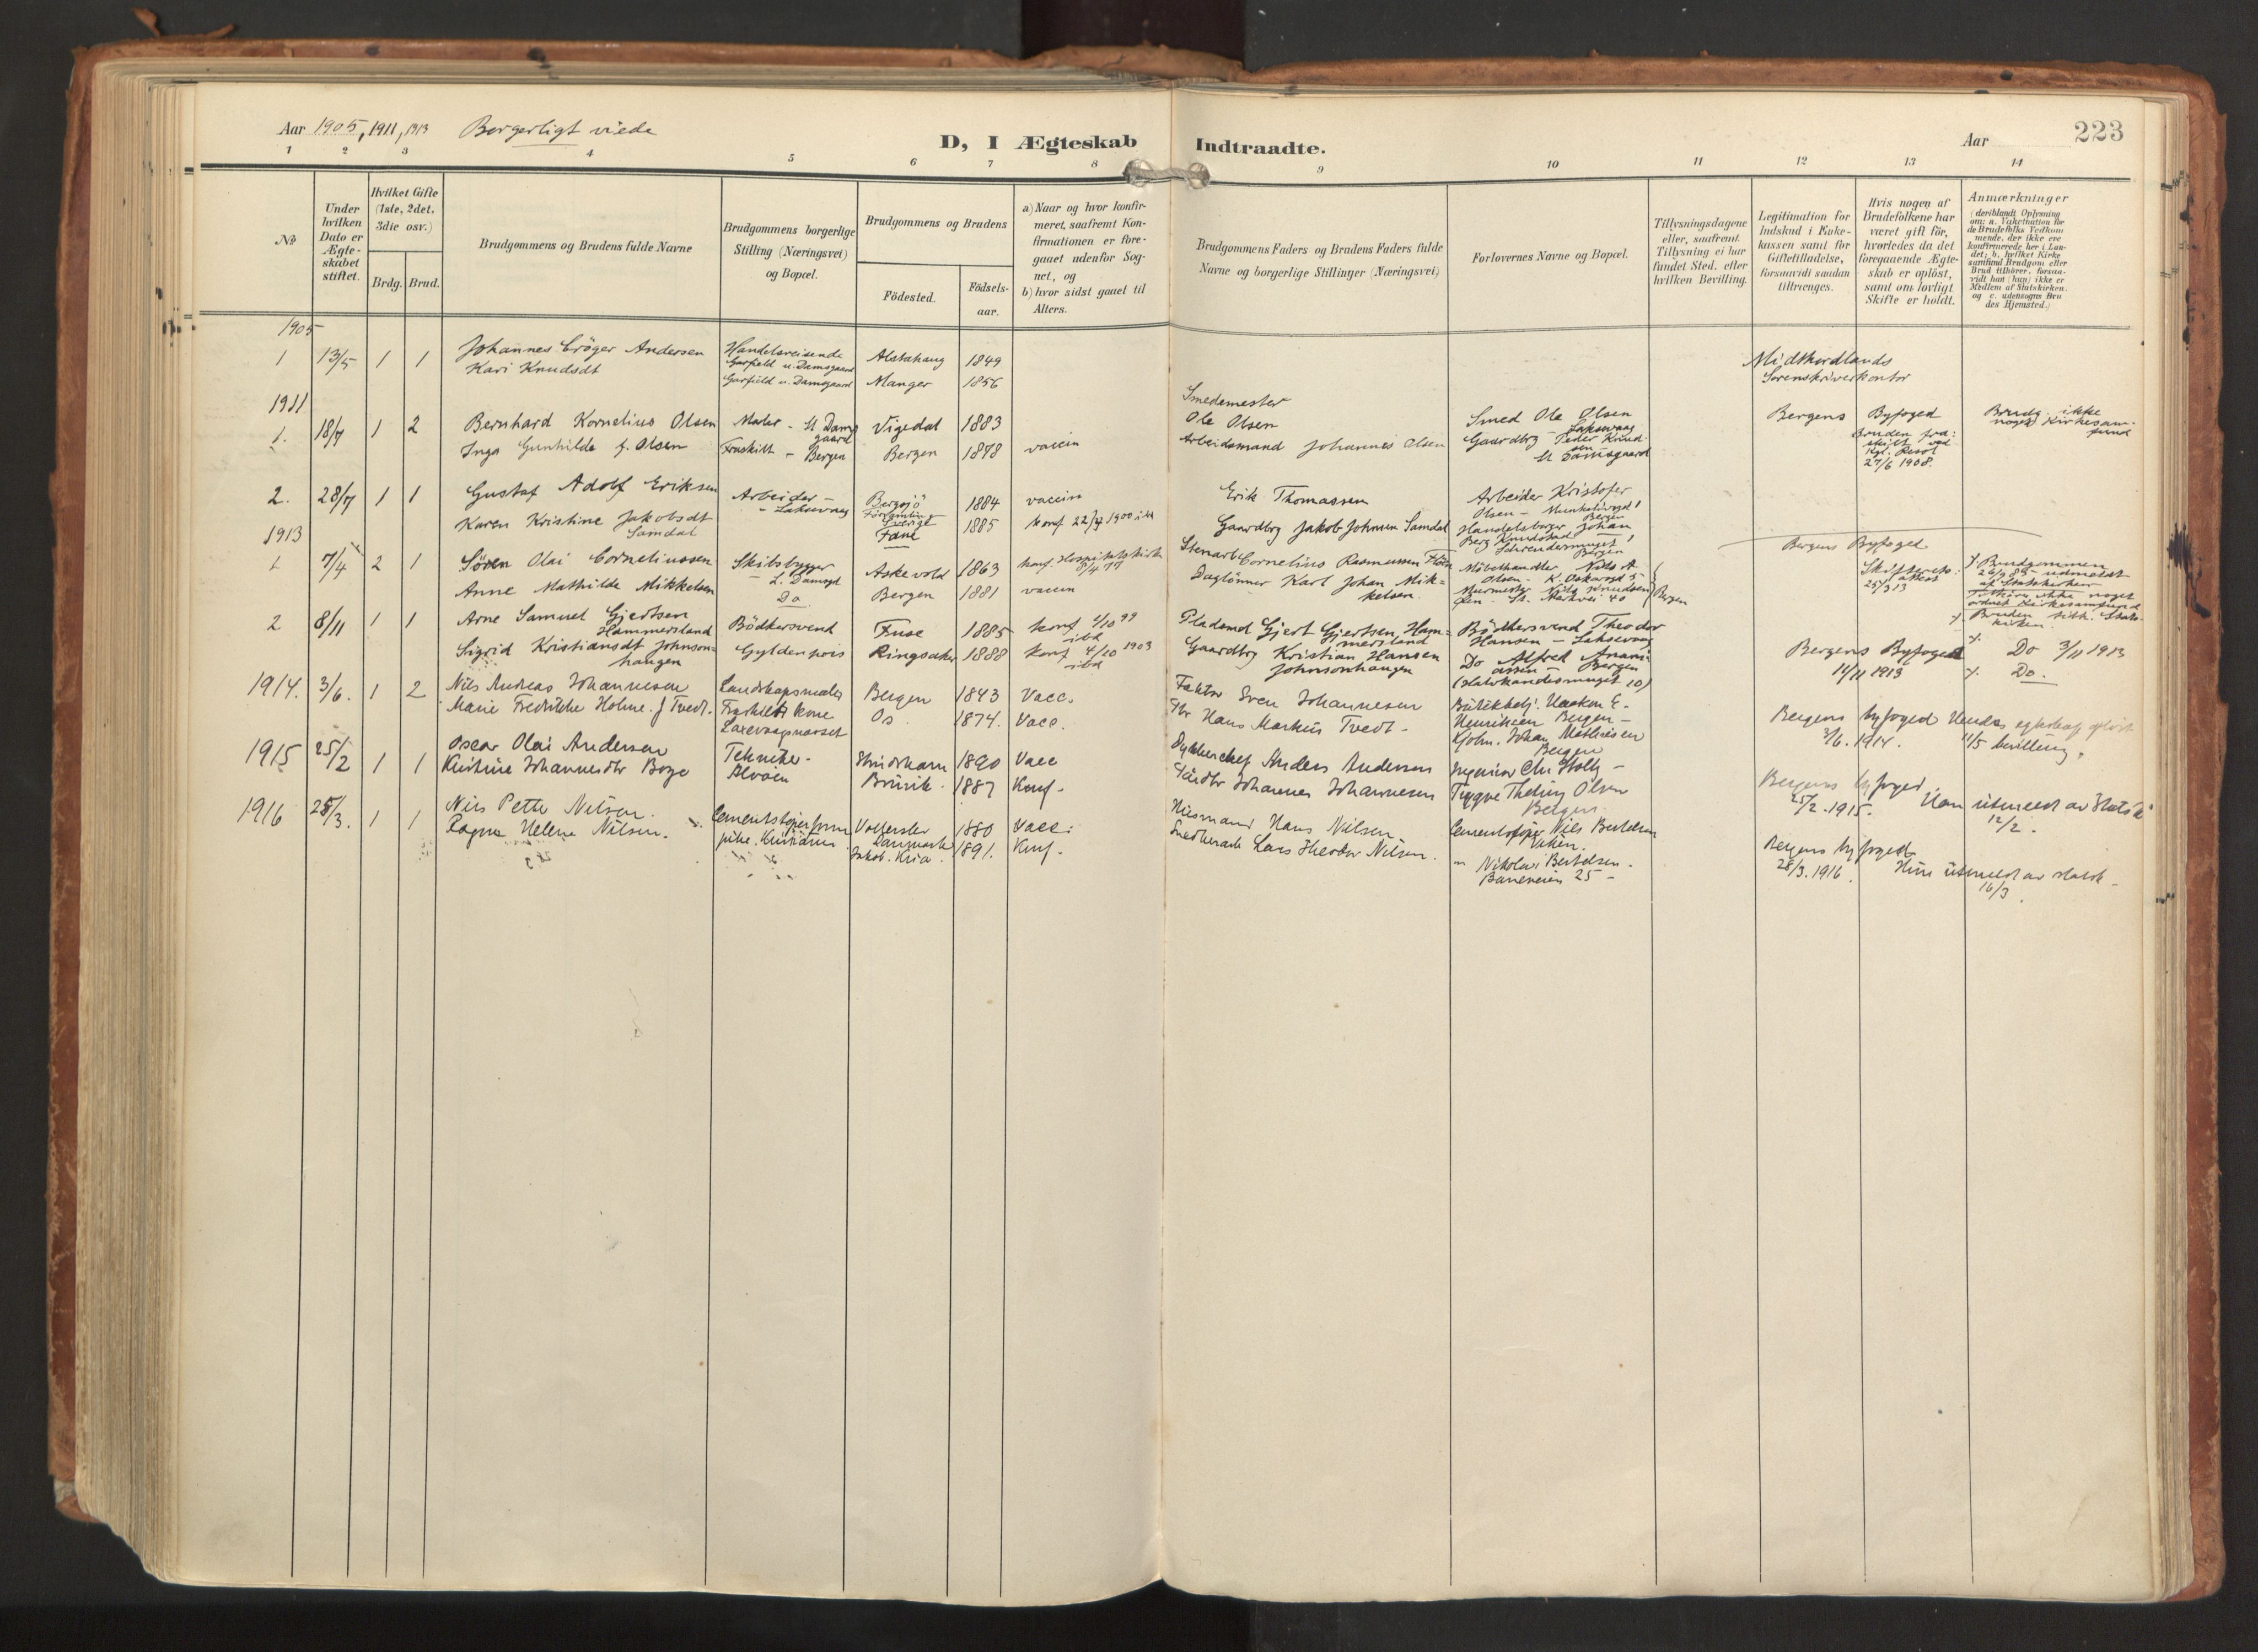 Aar 1905, 1911, 1913 Borgerligt viede
D, I Ægteskab Indtraadte.
Aar
223
1 2 3 4 5 6 7 8 9 10 11 12 13 14
No
Under hvilken Dato er Ægteskabet stiftet.
Hvilket Gifte (1ste, 2det, 3die osv.)
Brdg. Brud.
Brudgommens og Brudens fulde Navne
Brudgommens borgerlige Stilling (Næringsvei) og Bopæl.
Brudgommens og Brudens
Födested.
Födselsaar.
a) Naar og hvor konfirmeret, saafremt Konfirmationen er foregaaet udenfor Sognet, og
b) hvor sidst gaaet til Alters.
Brudgommens Faders og Brudens Faders fulde Navne og borgerlige Stillinger (Næringsvei)
Forlovernes Navne og Bopæl.
Tillysningsdagene eller, saafremt Tillysning ei har fundet Sted, efter hvilken Bevilling.
Legitimation for Indskud i Enkekassen samt for Giftetilladelse, forsaavidt saadan tiltrænges.
Hvis nogen af Brudefolkene har været gift för, hvorledes da det foregaaende Ægteskab er oplöst, samt om lovligt Skifte er holdt.
Anmærkninger
(deriblandt Oplysning om: a. Vakcination for de Brudefolks Vedkommende, der ikke ere konfirmerede her i Landet; b. hvilket Kirkesamfund Brudgom eller Brud tilhörer, forsaavidt han (hun) ikke er Medlem af Statskirken, og c. udensogns Brudes Hjemsted.)
1905
1 13/5 1 1 Johannes Cröger Andersen Handelsreisende Garfield u. Damsgaard Alstahaug 1849
Kari Knudsdt Garfield u. Damsgaard Manger 1856
Midthordlands Sorenskriverkontor
1911
1. 18/7 1 2 Bernhard Kornelius Olsen Maler - St Damsgaard Vigedal 1883
Smedemester Ole Olsen
Smed Ole Olsen - Laksevaag
Bergens Byfoged
Brudg. ikke noget Kirkesamfund
Inga Gunhilda f. Olsen Fraskilt - Bergen Bergen 1878 vaccin
Arbeidsmand Johannes Olsen
Gaardbrg Peder Knudsen St Damsgaard
Bruden fraskilt ved Kgl. Resol 27/6 1908.
2. 28/7 1 1 Gustaf Adolf Eriksen Arbeider - Laksevaag Bergsjö Församling Sverige 1884 vaccin
Erik Thomassen
Arbeider Kristofer Olsen - Bergen
Karen Kristine Jakobsdt Samdal Fane 1885 konf 1900
Gaardbrg Jakob Johnsen Samdal
Handelsborger Johan Berg Knudstad Bergen
1913
1 7/4 2 1 Sören Olai Corneliussen Skibsbygger L. Damsgd Askevold 1863 konf. Hospitalskirk 8/4 77
Stenarb Cornelius Rasmussen
Möbelhandler Nils A. Olsen
Bergens Byfoged
Skifteretsattest 25/3 13
Brudgommen udmeldt af Statskirken
Tilhörer ikke noget ordnet Kirkesamfund
Anne Mathilde Mikkelsen Do Bergen 1881 vaccin
Daglönner Karl Johan Mikkelsen
Murmester Nils Knudsen Bergen
Bruden tilh. Statskirken
2 8/11 1 1 Arne Samuel Gjertsen Hammersland Bödkersvend Fuse 1885 konf 1/10 99 ibid
Pladsmd Gjert Gjertsen Hammersland
Bödkersvend Theodor Hansen - Laksevaag
Bergens Byfoged 11/11 1913
Do 3/11 1913
Sigrid Kristiansdt Johnsonhaugen Gyldenpris Ringsaker 1888 konf 4/10 1903 ibid
Gaardbrg Kristian Hansen Johnsonhaugen
Do Alfred Ananiassen - Bergen
Do.
1914. 3/6. 1 2 Nils Andreas Johannesen Landskapsmaler Bergen 1843 Vacc.
Faktor Sven Johannesen
Haakon E. Henriksen Bergen -
Bergens byfoged 3/6. 1914.
11/5 bevilling.
Marie Fredrikke Holme f Tvedt. Fraskilt kone Laxevaagneset Os 1874. Vacc.
Hans Markus Tvedt -
Kjøbm. Johan Mathiesen Bergen
1915 25/2 1 1 Oscar Olai Andersen Tekniker - Alvøen 1890 Vacc
Anders Andersen
Ingeniør Chr Holtz -
Bergens byfoged 25/2. 1915.
Han utmeldt av Statsk 12/2.
Kristine Johannesdtr Boge Bruvik 1887 Konf.
Gårdbr Johannes Johannesen
Trygve Olsen Bergen.
1916 28/3. 1 1 Nils Petter Nilsen. Cementstøper 1880 Vacc.
Husmand Hans Nilsen.
Cementstøper Nils Bertelsen
Bergens byfoged 28/3. 1916.
Hun utmeldt av statsk - 16/3.
Ragna Helene Nilsen. Jakob. Kria. 1891. Konf.
Snedkerarb Lars Theodor Nilsen.
" Nikolai Bertelsen. Baneveien 25 -